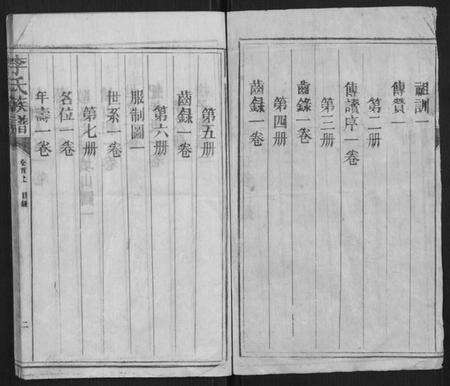 祖訓一
傳贊一
第二册
傳讀序一卷
第三册
齒錄一卷
第四册
齒録一卷
第五册
齒録一卷
第六册
服制圖一
世系一卷
第七册
名位一卷
年壽一卷
李氏族譜
卷首上 目録
二